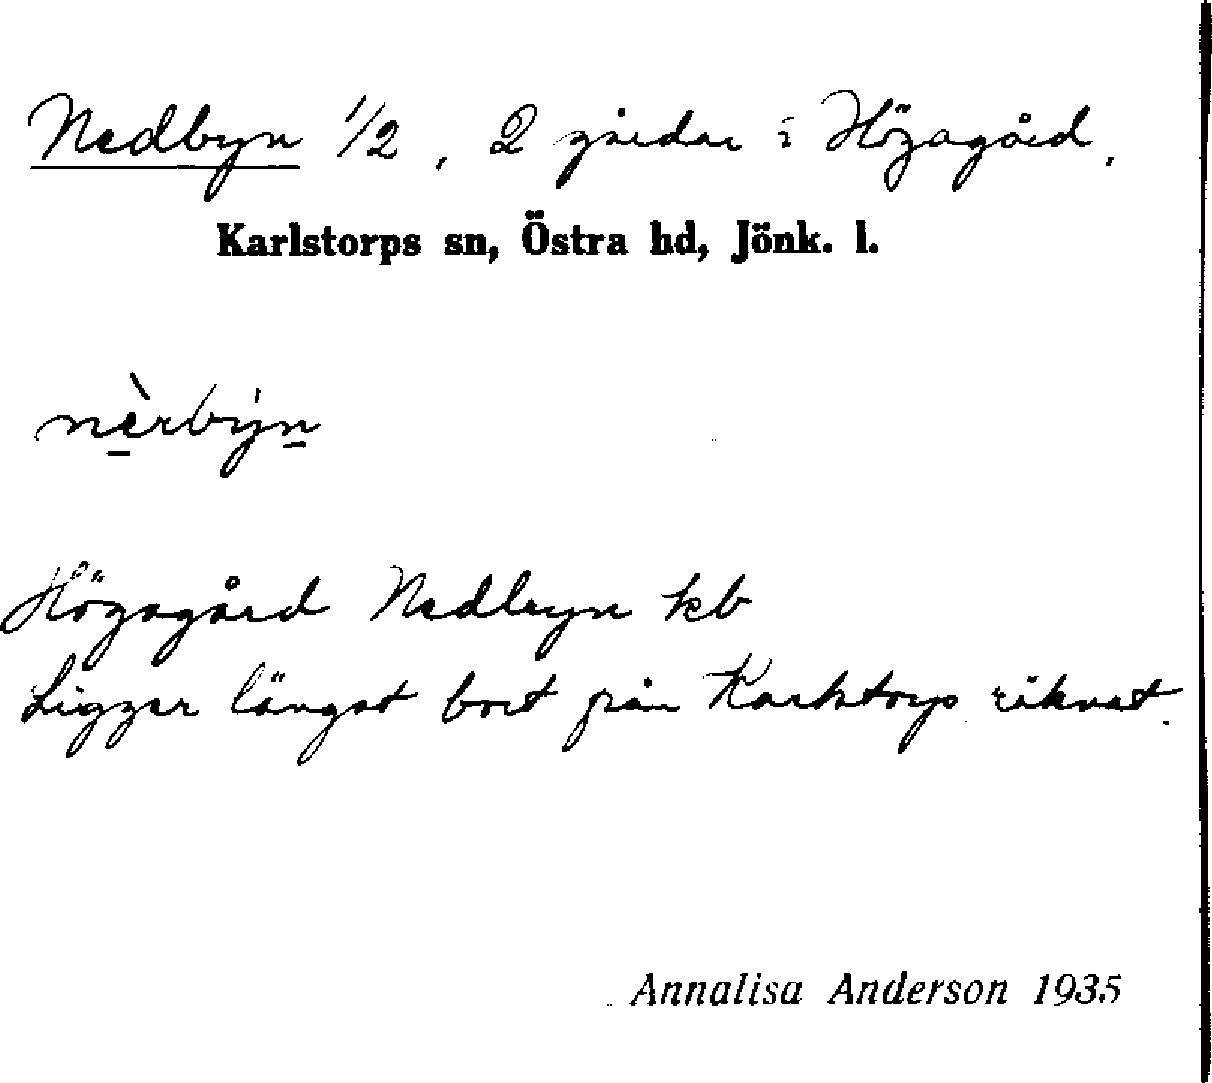 Nedbyn 1/2, 2 gårdar i Högagård.
Karlstorps sn, Östra hd, Jönk. l.
nèrbýn
Högagård Nedbyn kb
Ligger längst bort från Karlstorp räknat.
Annalisa Anderson 1935